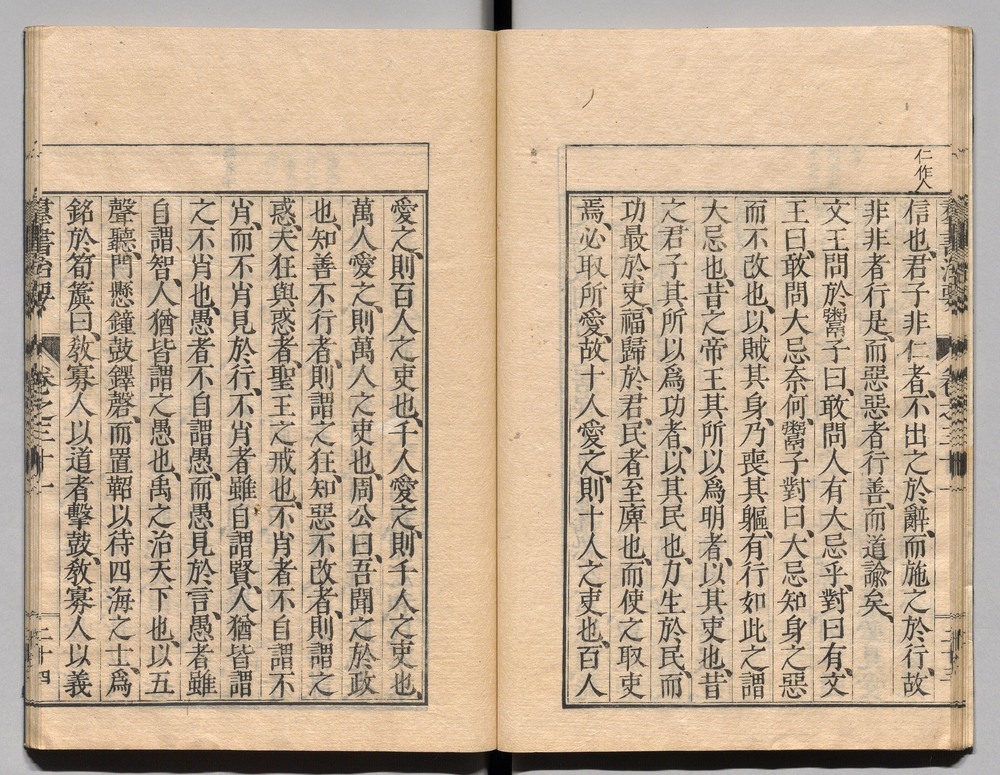 仁作人
信也、君子非仁者、不出之於辭、而施之於行、故
非非者行是、而惡惡者行善、而道諭矣、
文王問於鬻子曰、敢問人有大忌乎、對曰、有、文
王曰、敢問大忌奈何、鬻子對曰、大忌知身之惡
而不改也、以賊其身、乃喪其軀、有行如此之謂
大忌也、昔之帝王其所以爲明者、以其吏也、昔
之君子其所以爲功者、以其民也、力生於民、而
功最於吏、福歸於君、民者至庳也、而使之取吏
焉、必取所愛、故十人愛之、則十人之吏也、百人
愛之、則百人之吏也、千人愛之、則千人之吏也、
萬人愛之、則萬人之吏也、周公曰、吾聞之於政
也、知善不行者、則謂之狂、知惡不改者、則謂之
惑、夫狂與惑者、聖王之戒也、不肖者不自謂不
肖、而不肖見於行、不肖者雖自謂賢、人猶皆謂
之不肖也、愚者不自謂愚、而愚見於言、愚者雖
自謂智、人猶皆謂之愚也、禹之治天下也、以五
聲聽、門懸鐘鼓鐸磬、而置鞀以待四海之士、爲
銘於筍簴曰、敎寡人以道者擊鼓、敎寡人以義
羣書治要 卷之三十一 二十四